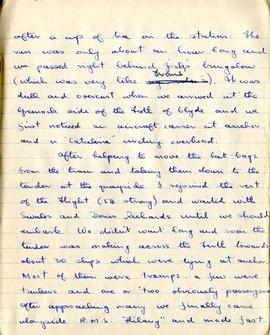 after a cup of tea on the station. The
run was only about an hour long and
we passed right behind Jock's bungalow
Evans'
(which was very like). It was
dull and overcast when we arrived at the
Greenock side of the Firth of Clyde and we
just noticed an aircraft carrier at anchor
and a 'Catalina' circling overhead.
After helping to move the kit-bags
from the train and taking them down to the
tender at the quayside I rejoined the rest
of the flight (54 strong) and waited with
Swales and Denis Richards until we should
embark. We didn't wait long and soon the
tender was making across the Firth towards
about 30 ships which were lying at anchor.
Most of them were tramps, a few were
tankers and one or two obviously passengers
After approaching many we finally came
alongside R.M.S. "Highway" and made fast.